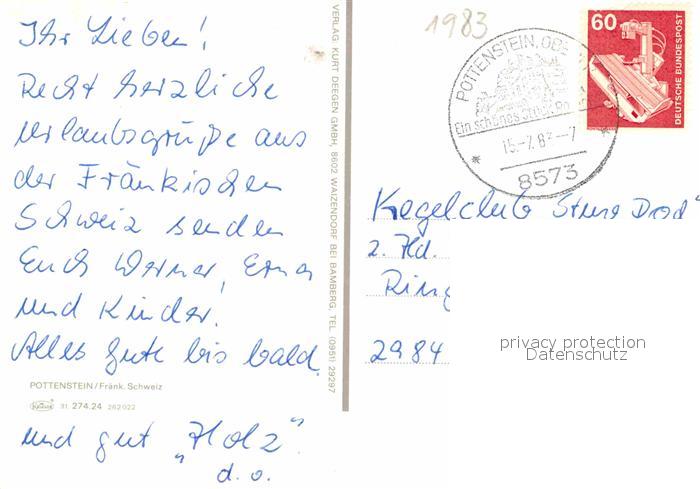 Ihr Lieben!
Recht herzliche
Urlaubsgrüße aus
der Fränkischen
Schweiz senden
Euch Werner, Erna
und Kinder.
Alles Gute bis bald.
POTTENSTEIN/Fränk. Schweiz
31 274.24 262022
und gut „Holz"
d. o.
VERLAG KURT DEEGEN GMBH, 8602 WAIZENDORF BEI BAMBERG, TEL. (0951) 29297
1983
POTTENSTEIN, OBE
Ein schönes
15.-7.83--7
8573
60
DEUTSCHE BUNDESPOST
Kegelclub
z. Hd.
Ring
2984
privacy protection
Datenschutz